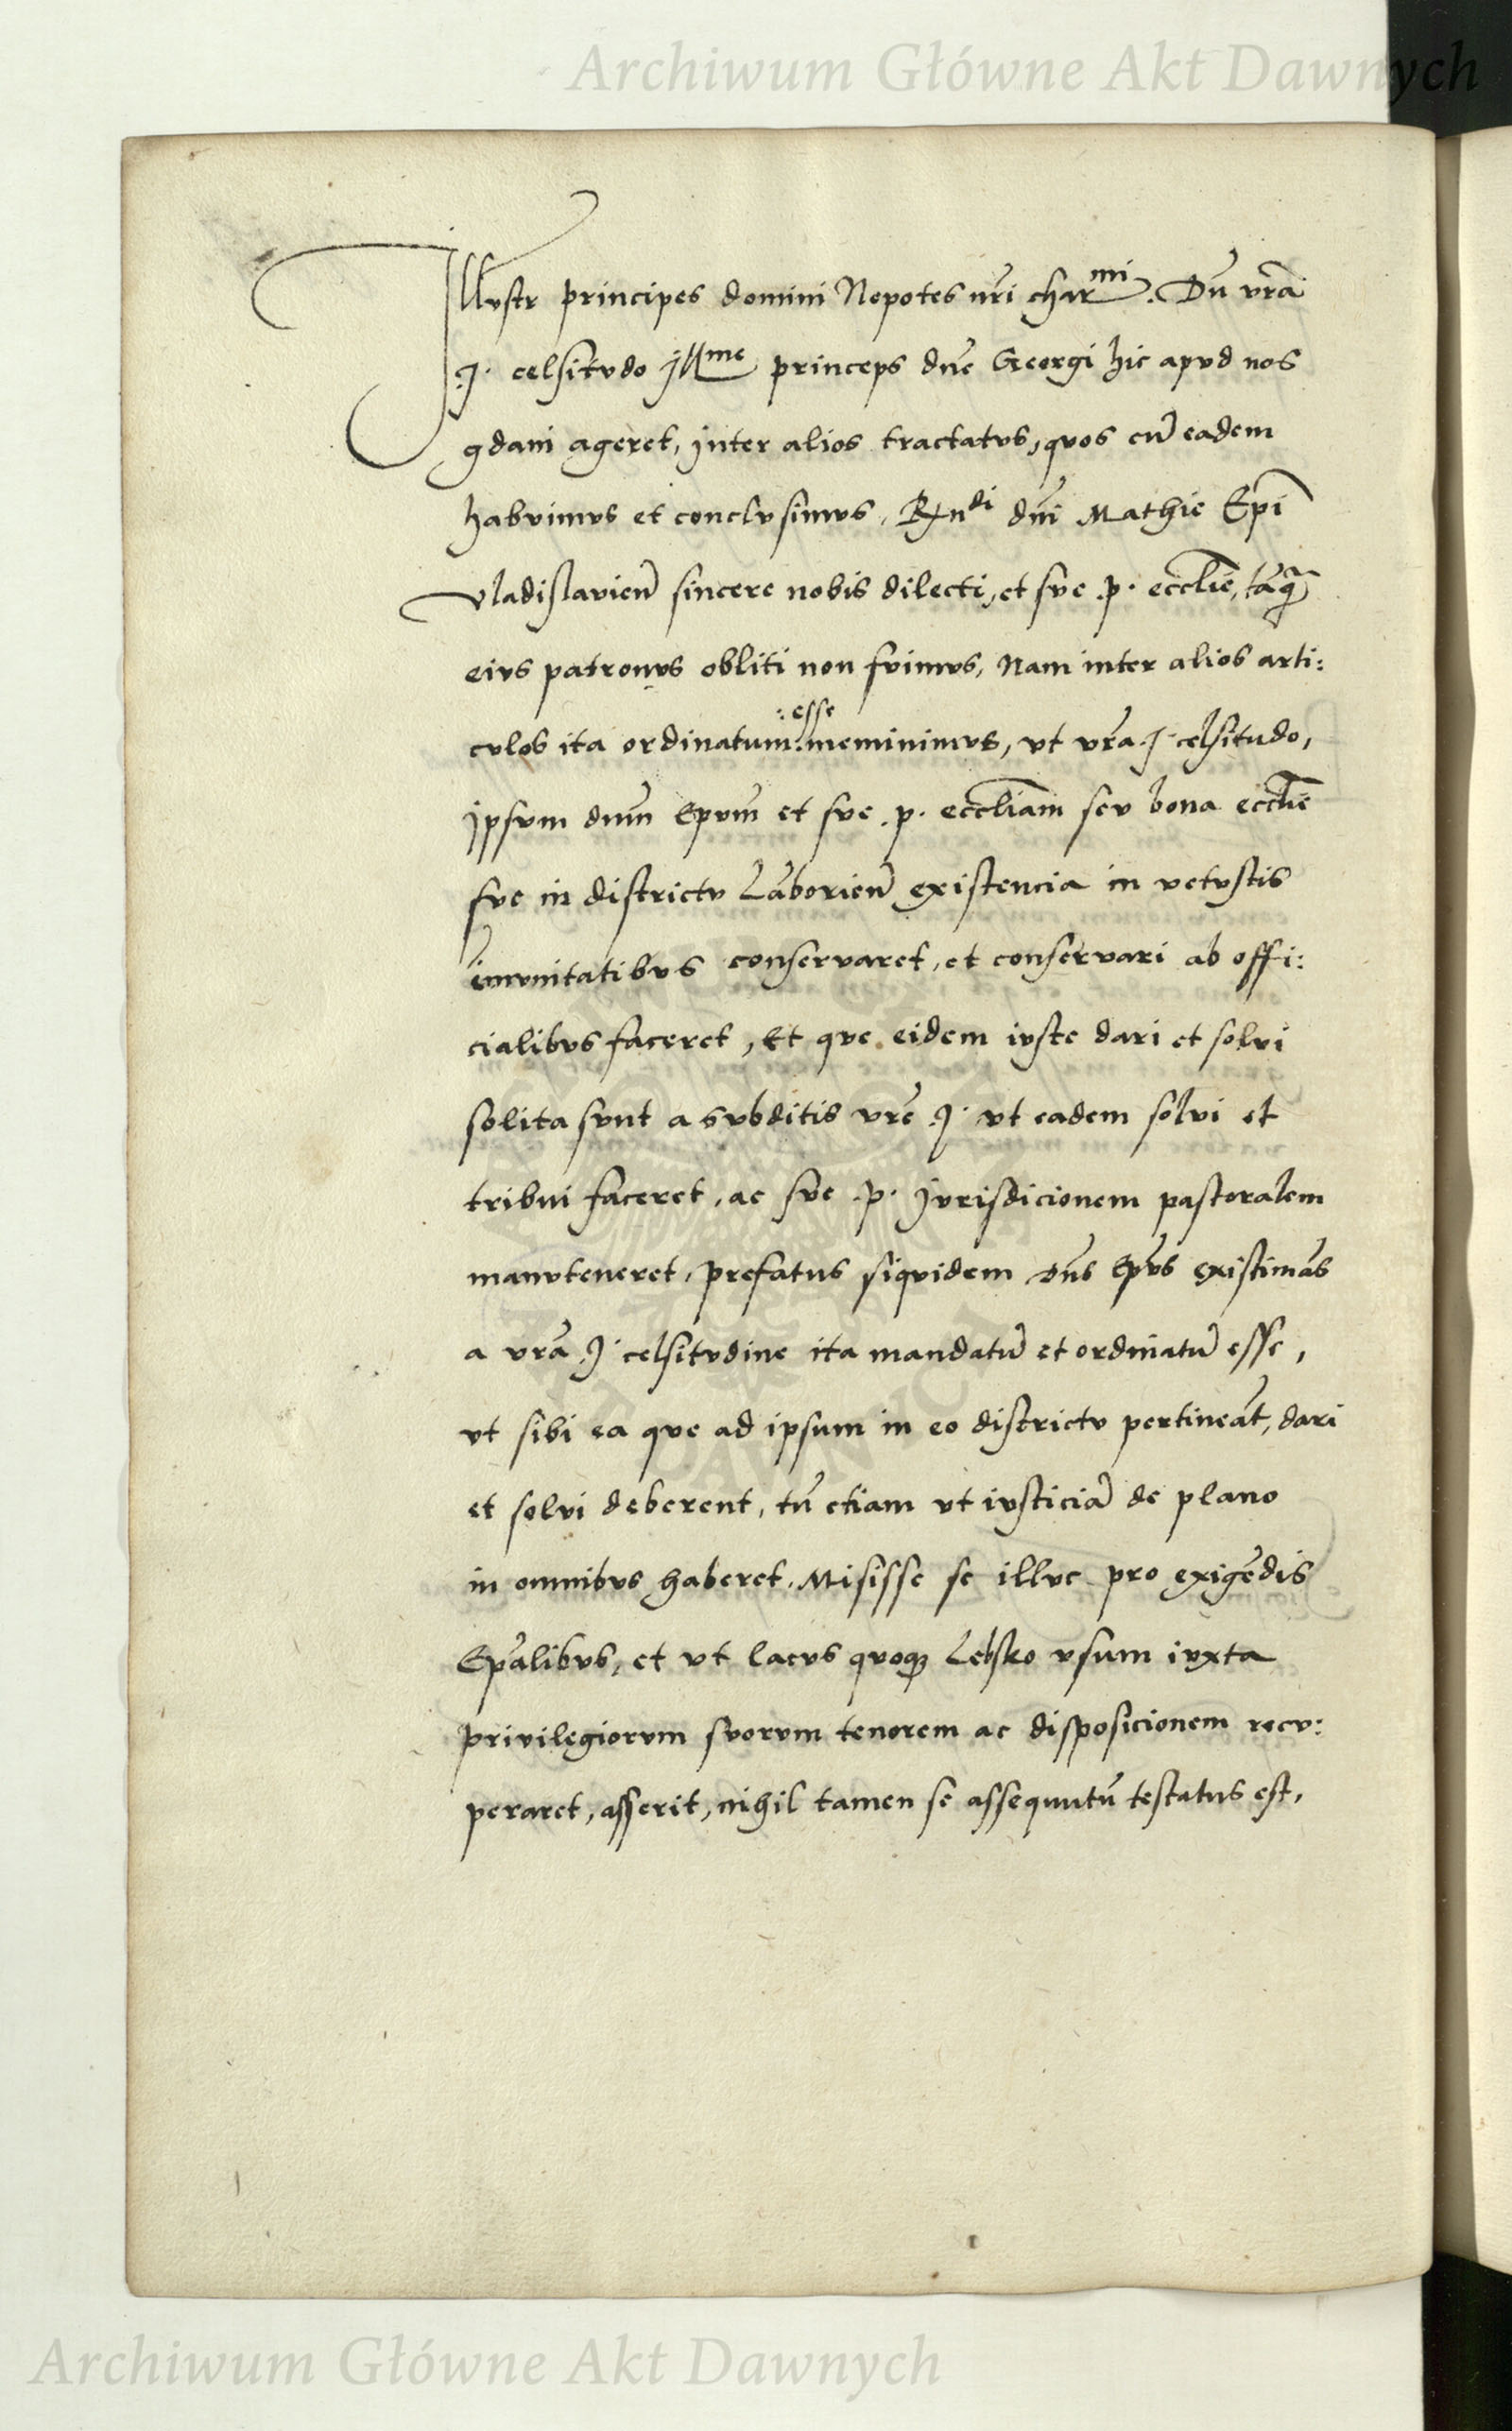 Archiwum Główne Akt Dawnych
Illustr principes domini Nepotes nr̃i char^mi. Dũ vrã
.J. celsitvdo jll^me princeps dñe Georgi hic apvd nos
gdani ageret, jnter alios tractatvs, qvos cũ eadem
habvimvs et conclvsimvs, R^ndi dñi Mathie Ep̃i
Vladislavieñ sincere nobis dilecti, et sve .p. eccl̃ie, tãq̃
eivs patronvs obliti non fvimvs, Nam inter alios arti:
cvlos ita ordinatum :esse meminimvs, vt vrã .J. celsitudo,
jpsvm dnm̃ Epvm̃ et sve .p. eccl̃iam sev bona eccl̃ie
sve in districtv Lãborieñ existencia in vetvstis
im̃vnitatibvs conservaret, et conservari ab offi:
cialibvs faceret, Et qve eidem ivste dari et solvi
solita svnt a svbditis vrẽ .J. vt eadem solvi et
tribui faceret, ac sve .p. jvrisdicionem pastoralem
manvteneret, prefatus siqvidem dñs Ep̃vs existimãs
a vrã .J. celsitvdine ita mandatũ et ordinatũ esse,
vt sibi ea qve ad ipsum in eo districtv pertineãt, dari
et solvi deberent, tũ etiam vt ivsticiã de plano
in omnibvs haberet, Misisse se illvc pro exigẽdis
Ep̃alibvs, et vt lacvs qvoq; Lebsko vsum ivxta
privilegiorvm svorvm tenorem ac disposicionem recv:
peraret, asserit, nihil tamen se assequutũ testatus est,
Archiwum Główne Akt Dawnych